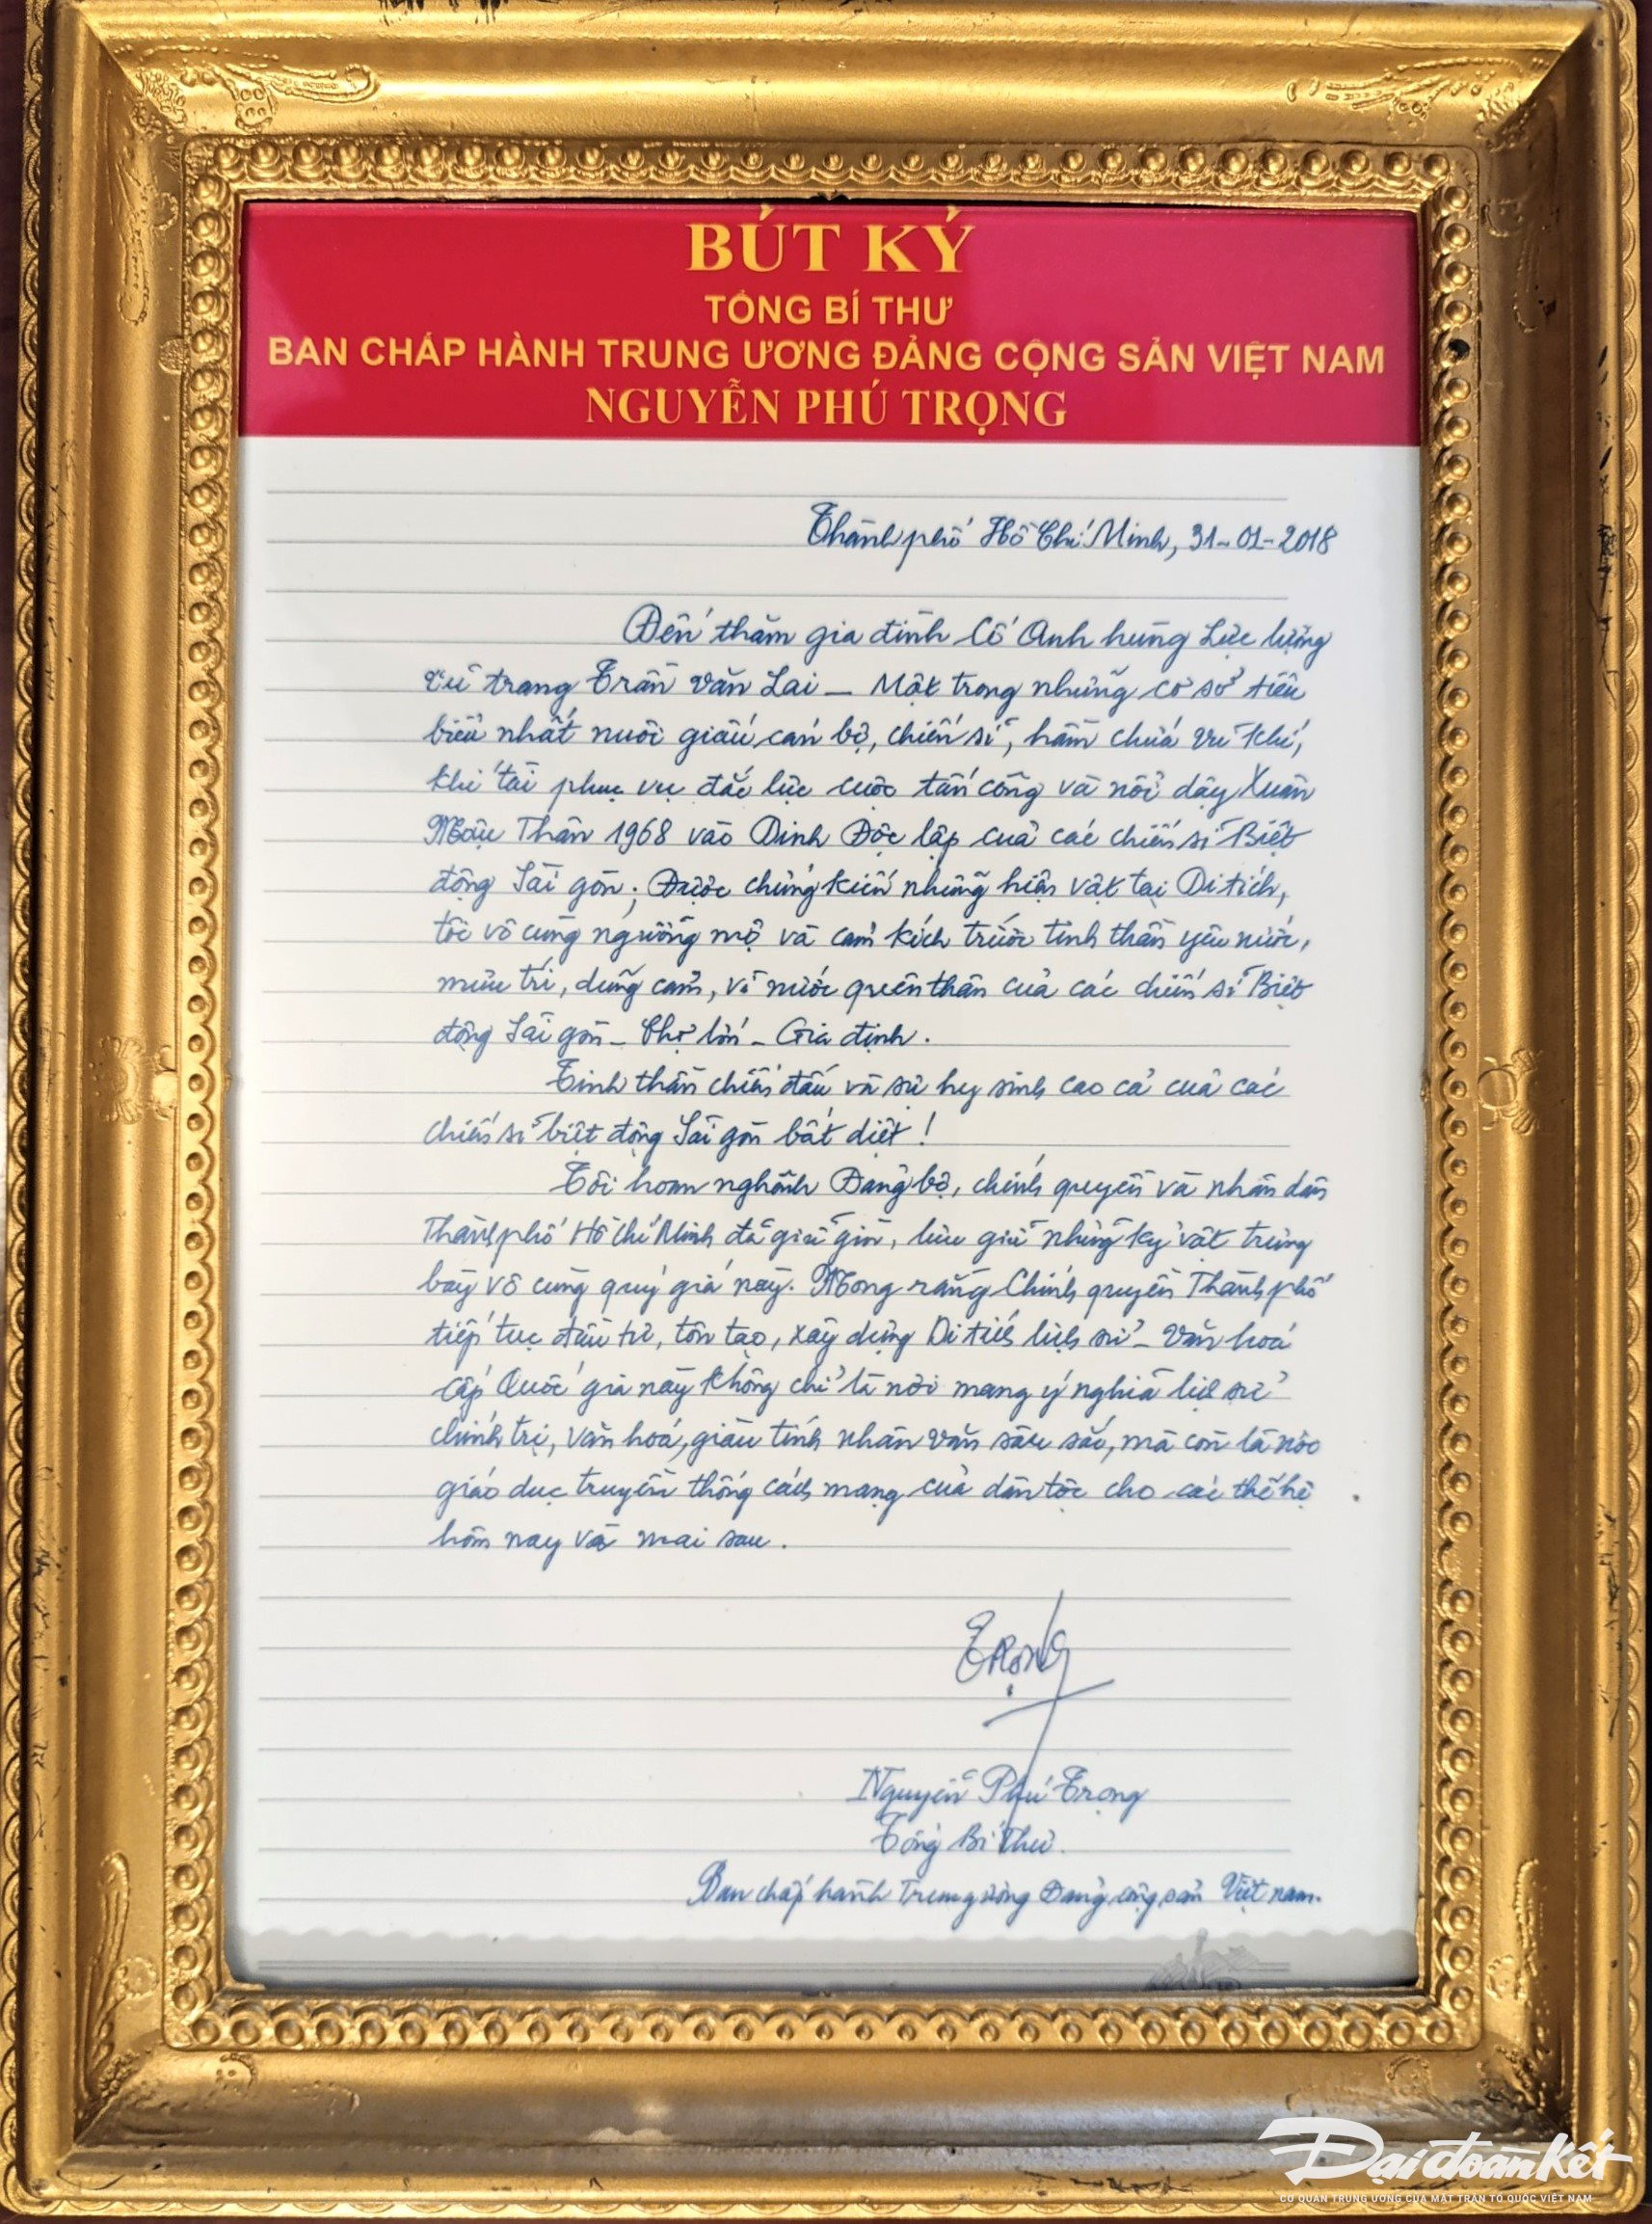 BÚT KÝ
TỔNG BÍ THƯ
BAN CHẤP HÀNH TRUNG ƯƠNG ĐẢNG CỘNG SẢN VIỆT NAM
NGUYỄN PHÚ TRỌNG
Thành phố Hồ Chí Minh, 31-01-2018
Đến thăm gia đình Cố Anh hùng Lực lượng
vũ trang Trần Văn Lai - Một trong những cơ sở tiêu
biểu nhất nuôi giấu cán bộ, chiến sĩ, hầm chứa vũ khí,
khí tài phục vụ đắc lực cuộc tấn công và nổi dậy Xuân
Mậu Thân 1968 vào Dinh Độc lập của các chiến sĩ Biệt
động Sài gòn; Được chứng kiến những hiện vật tại Di tích,
tôi vô cùng ngưỡng mộ và cảm kích trước tinh thần yêu nước,
mưu trí, dũng cảm, vì nước quên thân của các chiến sĩ Biệt
động Sài gòn - Chợ lớn - Gia định.
Tinh thần chiến đấu và sự hy sinh cao cả của các
chiến sĩ biệt động Sài gòn bất diệt!
Tôi hoan nghênh Đảng bộ, chính quyền và nhân dân
Thành phố Hồ Chí Minh đã giữ gìn, lưu giữ những kỷ vật trưng
bày vô cùng quý giá này. Mong rằng Chính quyền Thành phố
tiếp tục đầu tư, tôn tạo, xây dựng Di tích lịch sử - Văn hoá
cấp Quốc gia này không chỉ là nơi mang ý nghĩa lịch sử
chính trị, văn hoá, giàu tính nhân văn sâu sắc, mà còn là nơi
giáo dục truyền thống cách mạng của dân tộc cho các thế hệ
hôm nay và mai sau.
Trọng
Nguyễn Phú Trọng
Tổng Bí Thư
Ban chấp hành Trung ương Đảng cộng sản Việt nam.
Đại đoàn Kết
CƠ QUAN TRUNG ƯƠNG CỦA MẶT TRẬN TỔ QUỐC VIỆT NAM